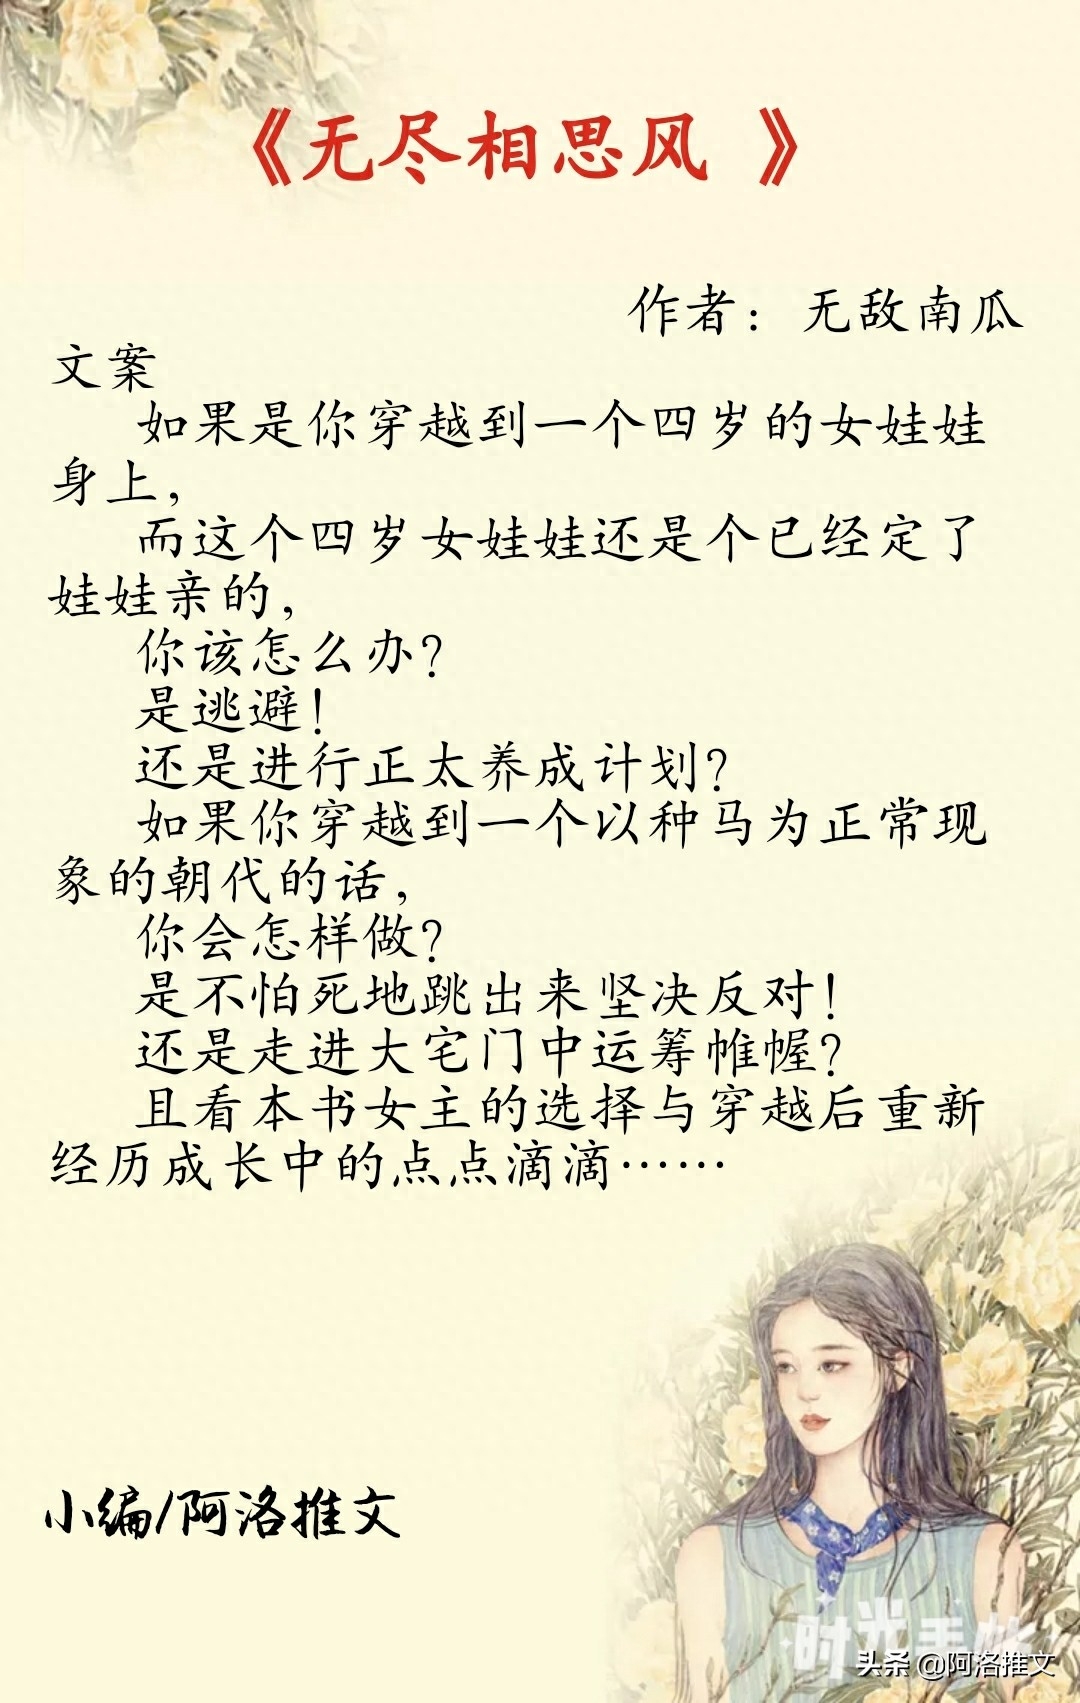 《无尽相思风 》
作者：无敌南瓜
文案
如果是你穿越到一个四岁的女娃娃
身上，
而这个四岁女娃娃还是个已经定了
娃娃亲的，
你该怎么办？
是逃避！
还是进行正太养成计划？
如果你穿越到一个以种马为正常现
象的朝代的话，
你会怎样做？
是不怕死地跳出来坚决反对！
还是走进大宅门中运筹帷幄？
且看本书女主的选择与穿越后重新
经历成长中的点点滴滴……
小编/阿洛推文
时光手帐
头条 @阿洛推文